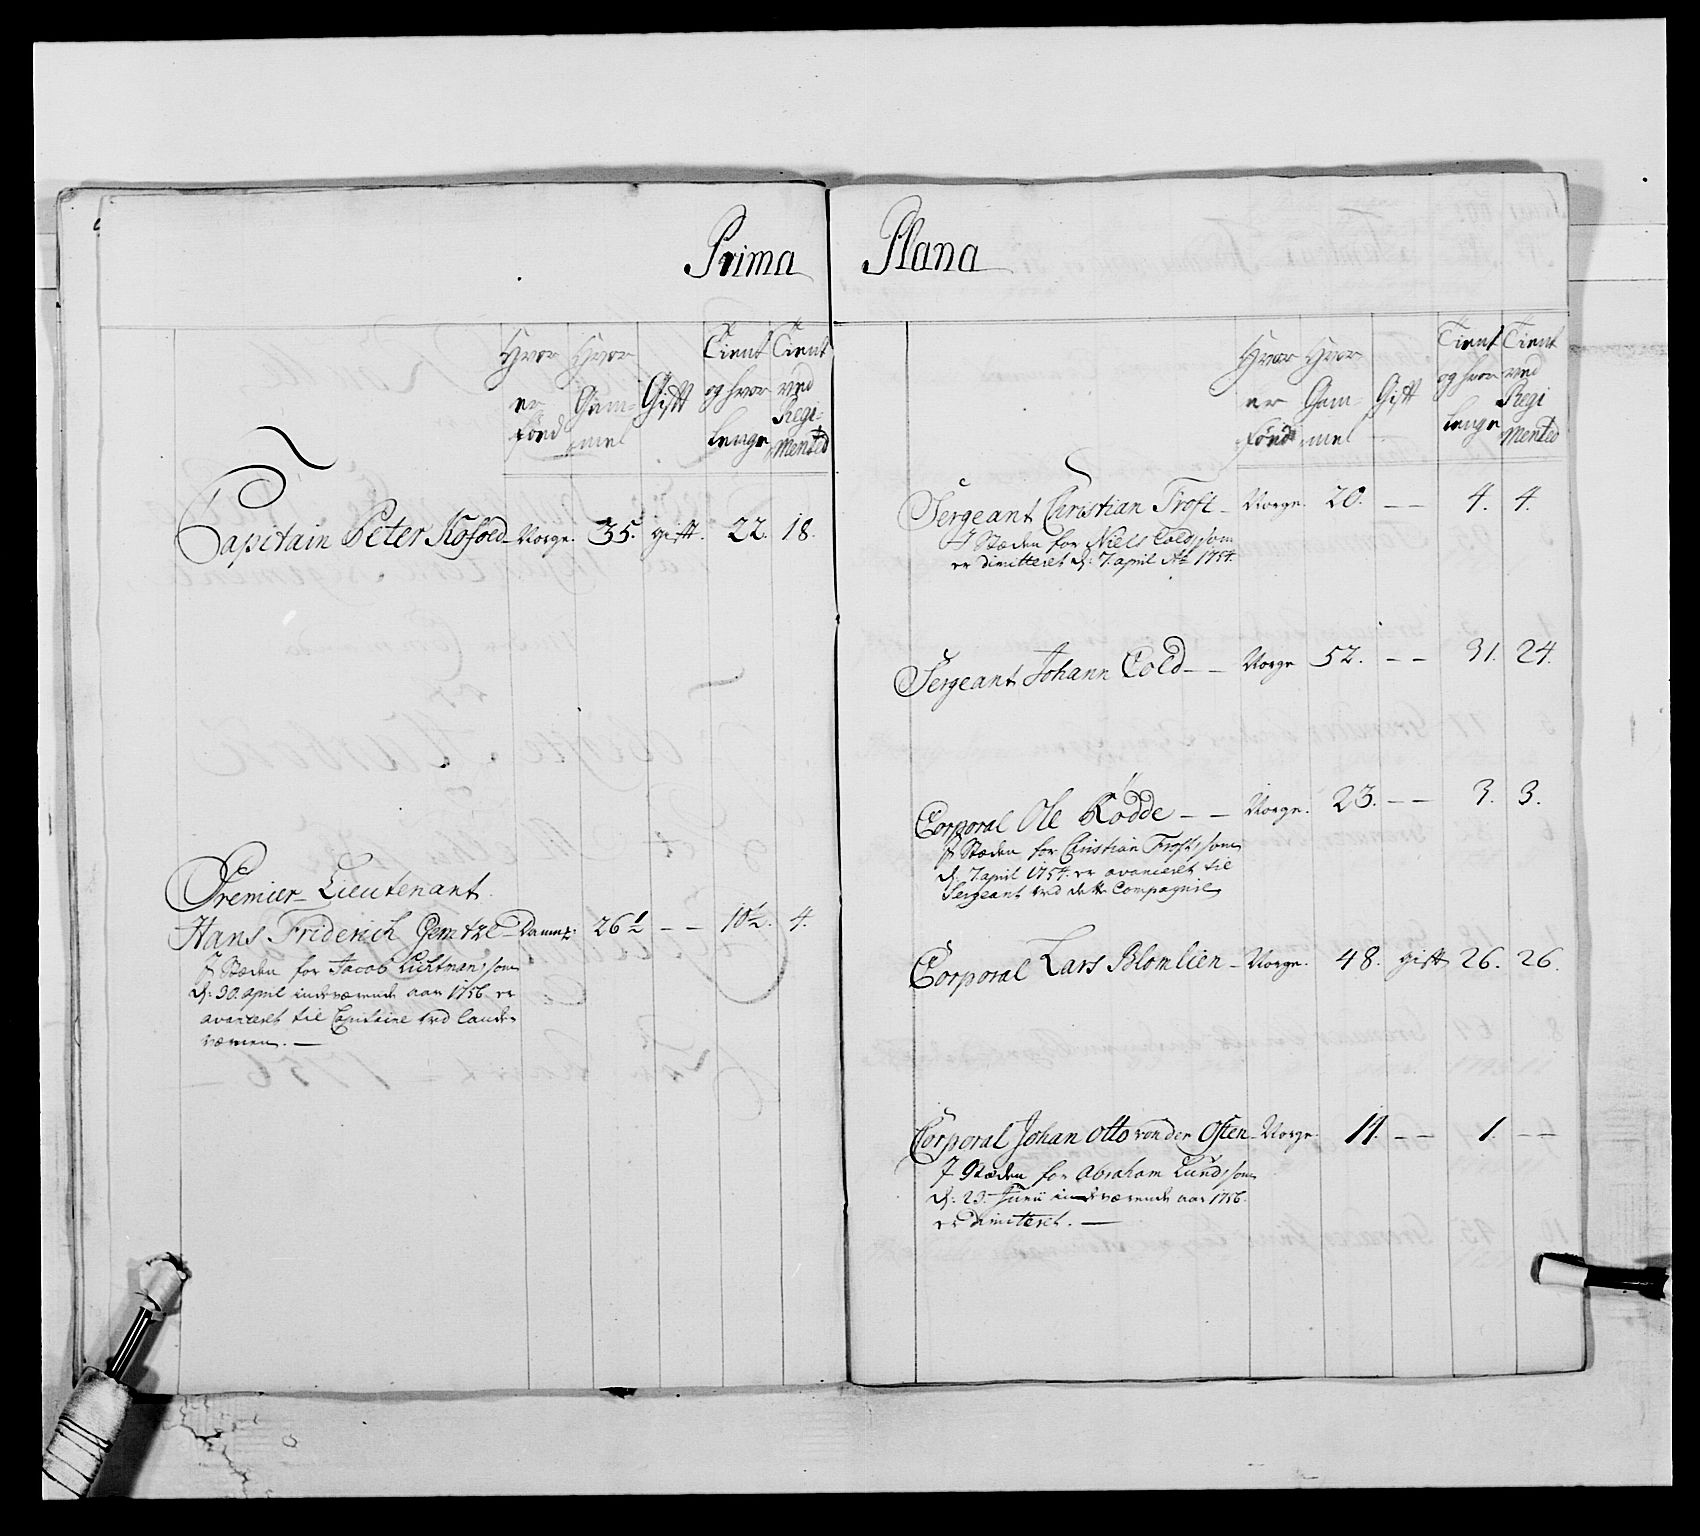 Prima Plana
Hvor er fönd
Hvor Gam-mel
Gift
Tient og hvor lenge
Tient ved Regi-mented
Capitain Peter Kofoed - Norge. 35. gift. 22. 18.
Premier-Lieutenant
Hans Friderich Gemtze - Danm: 26½ - - 10½. 4.
J Stæden for Jacob Lichtman, som
d: 30. april indeværende aar 1756 er
avanceret til Capitaine ved Lande-
værnen. -
Hvor er fönd
Hvor Gam-mel
Gift
Tient og hvor lenge
Tient ved Regi mented
Sergeant Christian Frost - Norge. 20. - - 4. 4.
J Stæden for Niels Cold, som
er dimitteret d: 7. april Ao 1754.
Sergeant Johann Cold - - Norge 52. - - 31. 24.
Corporal Ole Rödde - - Norge. 23. - - 3. 3.
J Stæden for Christian Frost, som
d. 7 april 1754. er avanceret til
Sergeant ved dette Compagnie
Corporal Lars Blomlien - Norge. 48. gift 26. 26.
Corporal Johan Otto von der Osten - Norge. 11. - - 1. - -
J Stæden for Abraham Lund, som
d: 23. Junii indeværende aar 1756.
er Dimiteret. -